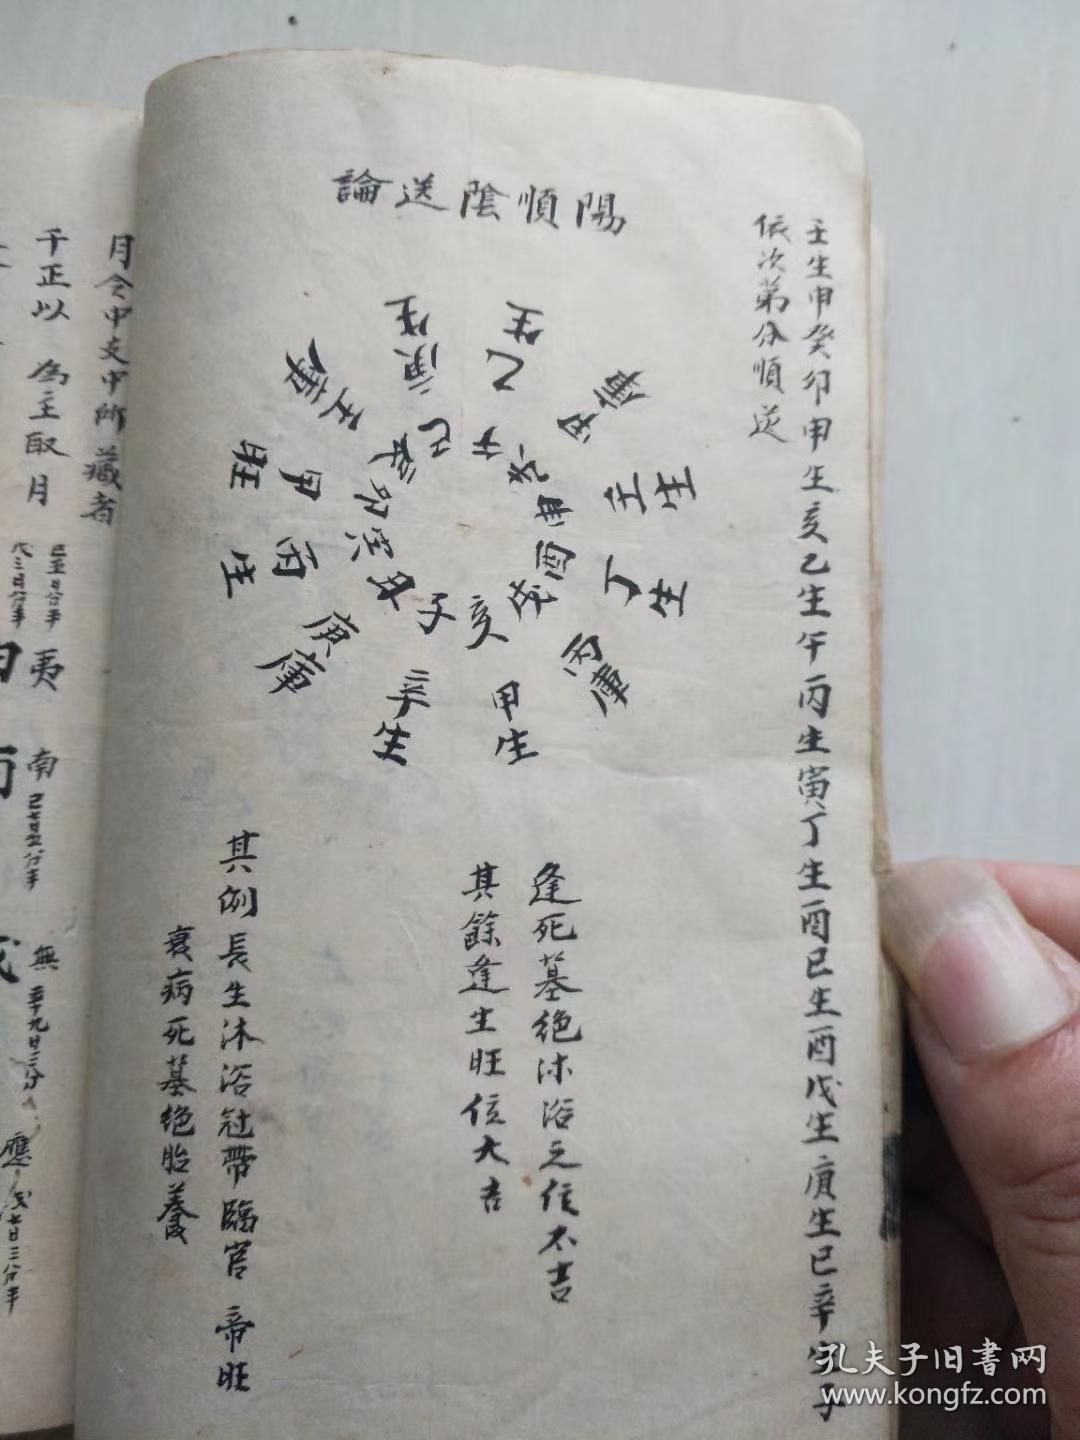 壬生申癸卯甲生亥乙生午丙生寅丁生酉己生酉戊生庚生巳辛生子
依次第分順逆
陽順陰送論
乙生
庚生
壬庫
甲旺
丙生
庚庫
辛生
甲生
丙庫
丁生
壬生
甲庫
午
巳
辰
卯
寅
丑
子
亥
戌
酉
申
未
逢死墓绝沐浴之位不吉
其餘逢生旺位大吉
其例長生沐浴冠帶臨官帝旺
衰病死墓绝胎養
月令中支中所藏者
干正以為主取月
夷
南
無
應
孔夫子旧書网
www.kongfz.com